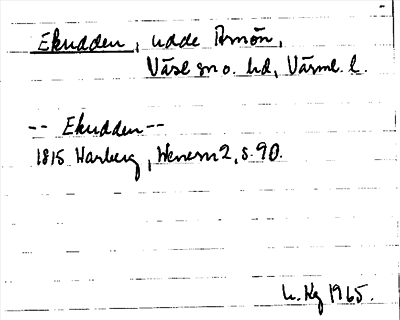 Ekudden, udde Arnön,
Väse sn o. hd, Värml. l.
-- Ekudden --
1815 Warberg, Wenern 2, s. 90.
1965.